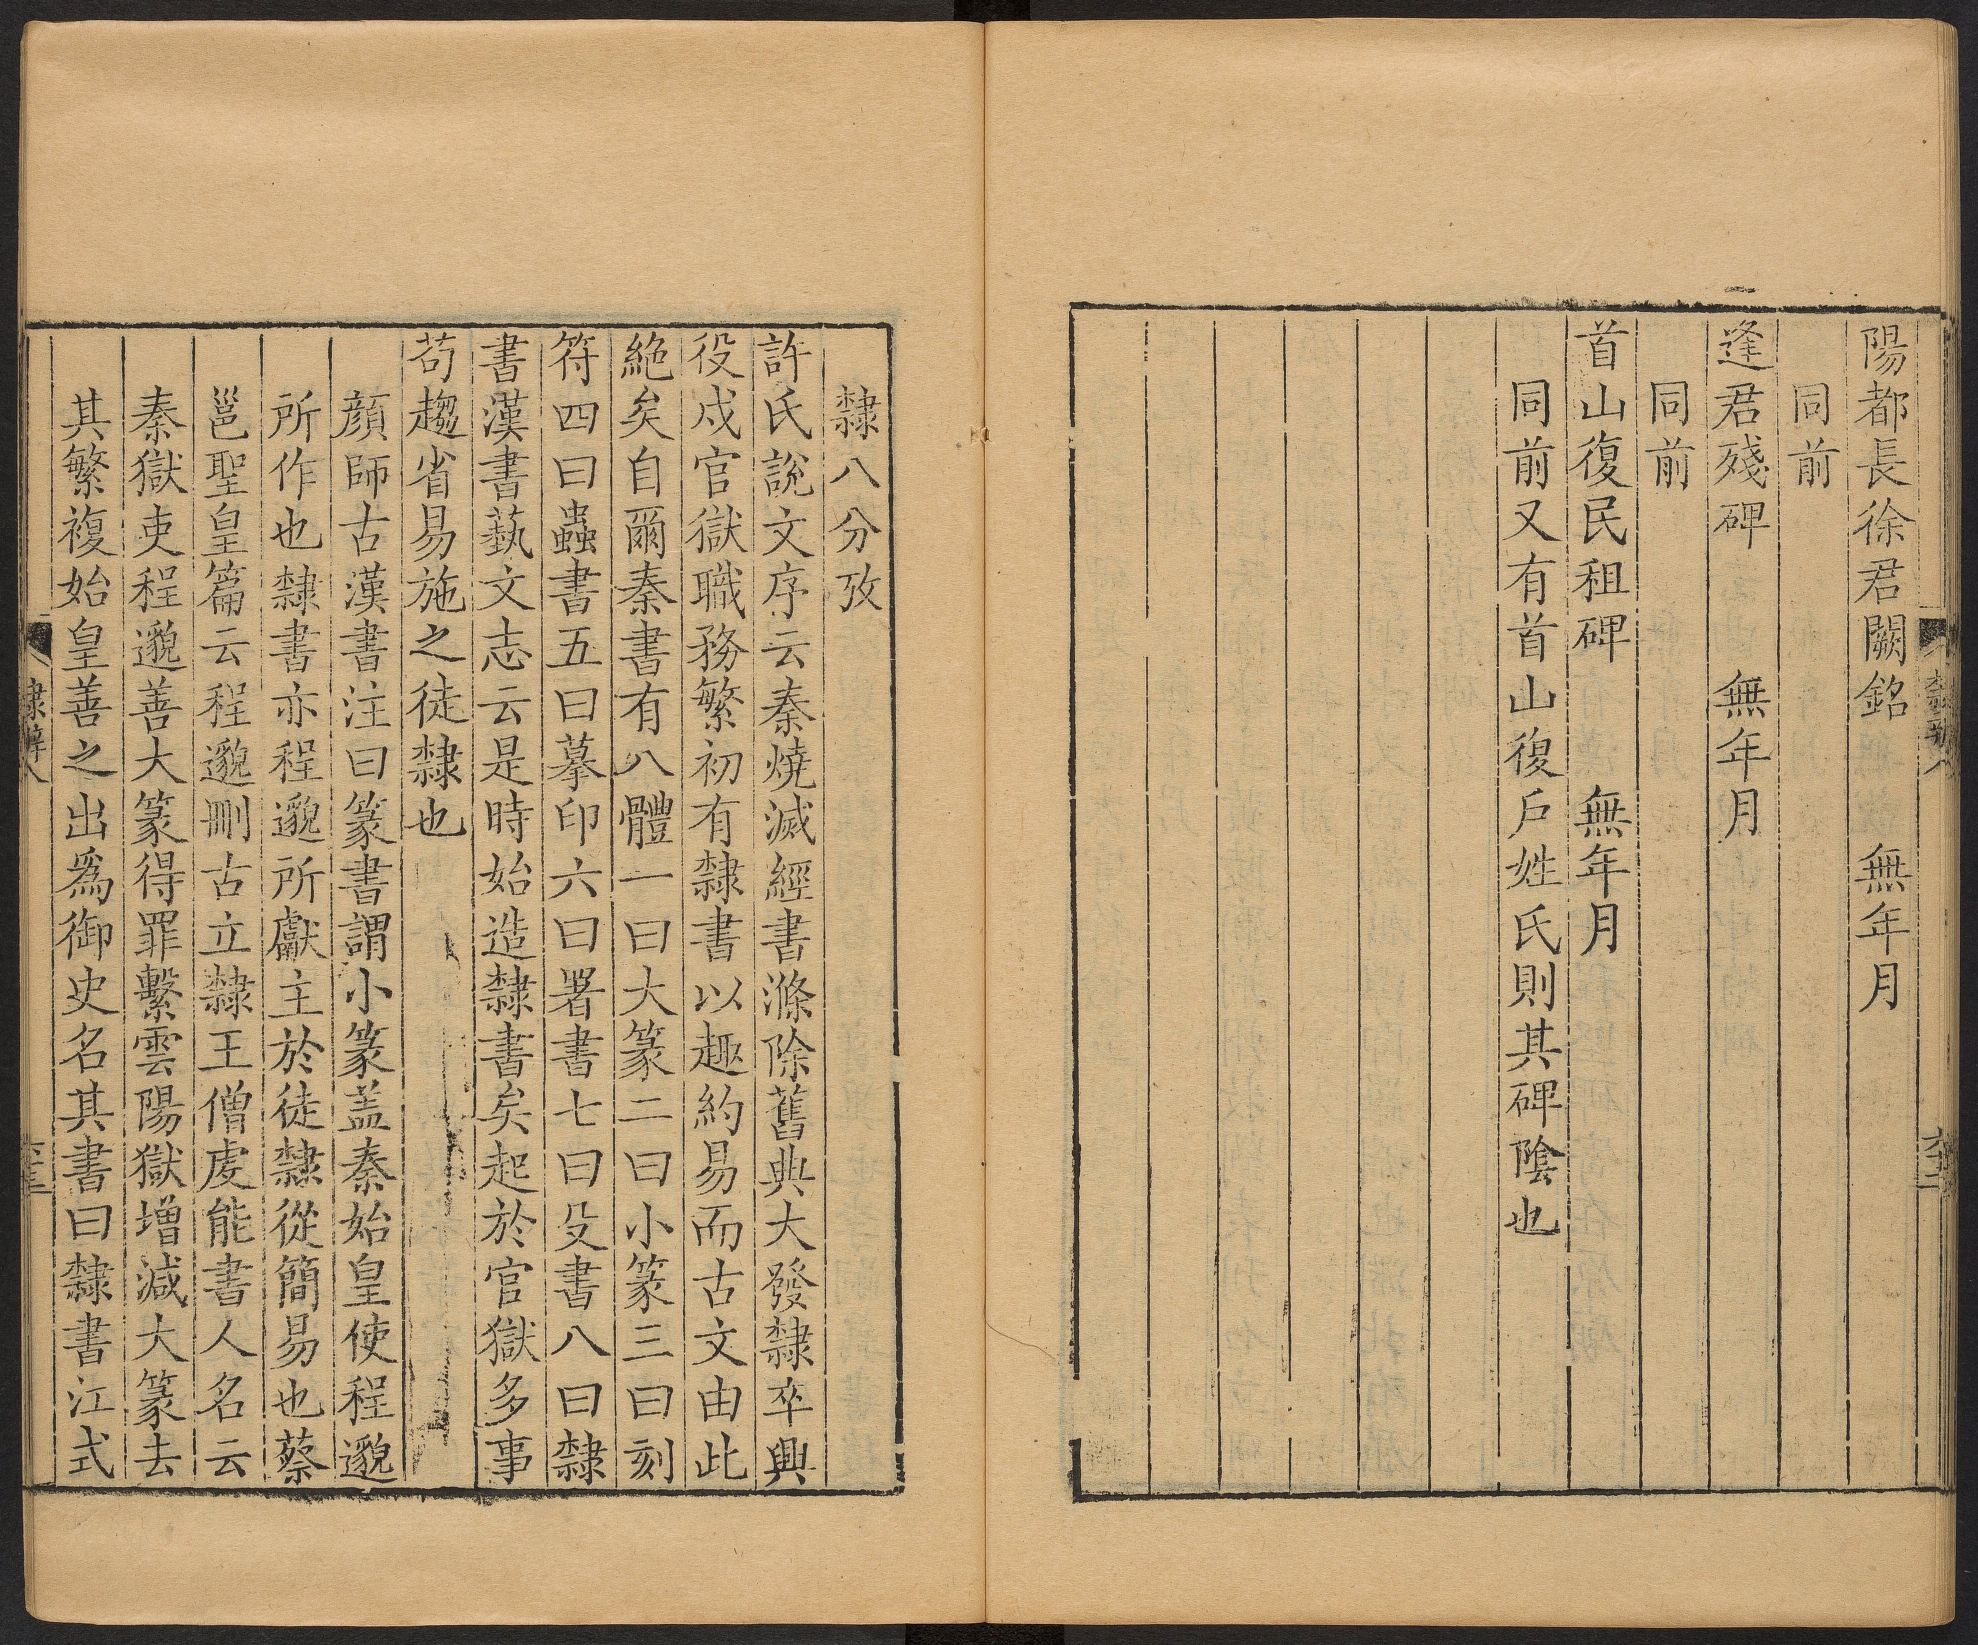 陽都長徐君闕銘　無年月
同前
逢君殘碑　無年月
同前
首山復民租碑　無年月
同前又有首山復戶姓氏則其碑陰也
隸八分攷
許氏說文序云秦燒滅經書滌除舊典大發隸卒興
役戍官獄職務繁初有隸書以趣約易而古文由此
絕矣自爾秦書有八體一曰大篆二曰小篆三曰刻
符四曰蟲書五曰摹印六曰署書七曰殳書八曰隸
書漢書藝文志云是時始造隸書矣起於官獄多事
苟趨省易施之徒隸也
顏師古漢書注曰篆書謂小篆蓋秦始皇使程邈
所作也隸書亦程邈所獻主於徒隸從簡易也蔡
邕聖皇篇云程邈刪古立隸王僧虔能書人名云
秦獄吏程邈善大篆得罪繫雲陽獄增減大篆去
其繁複始皇善之出爲御史名其書曰隸書江式
隸辨八